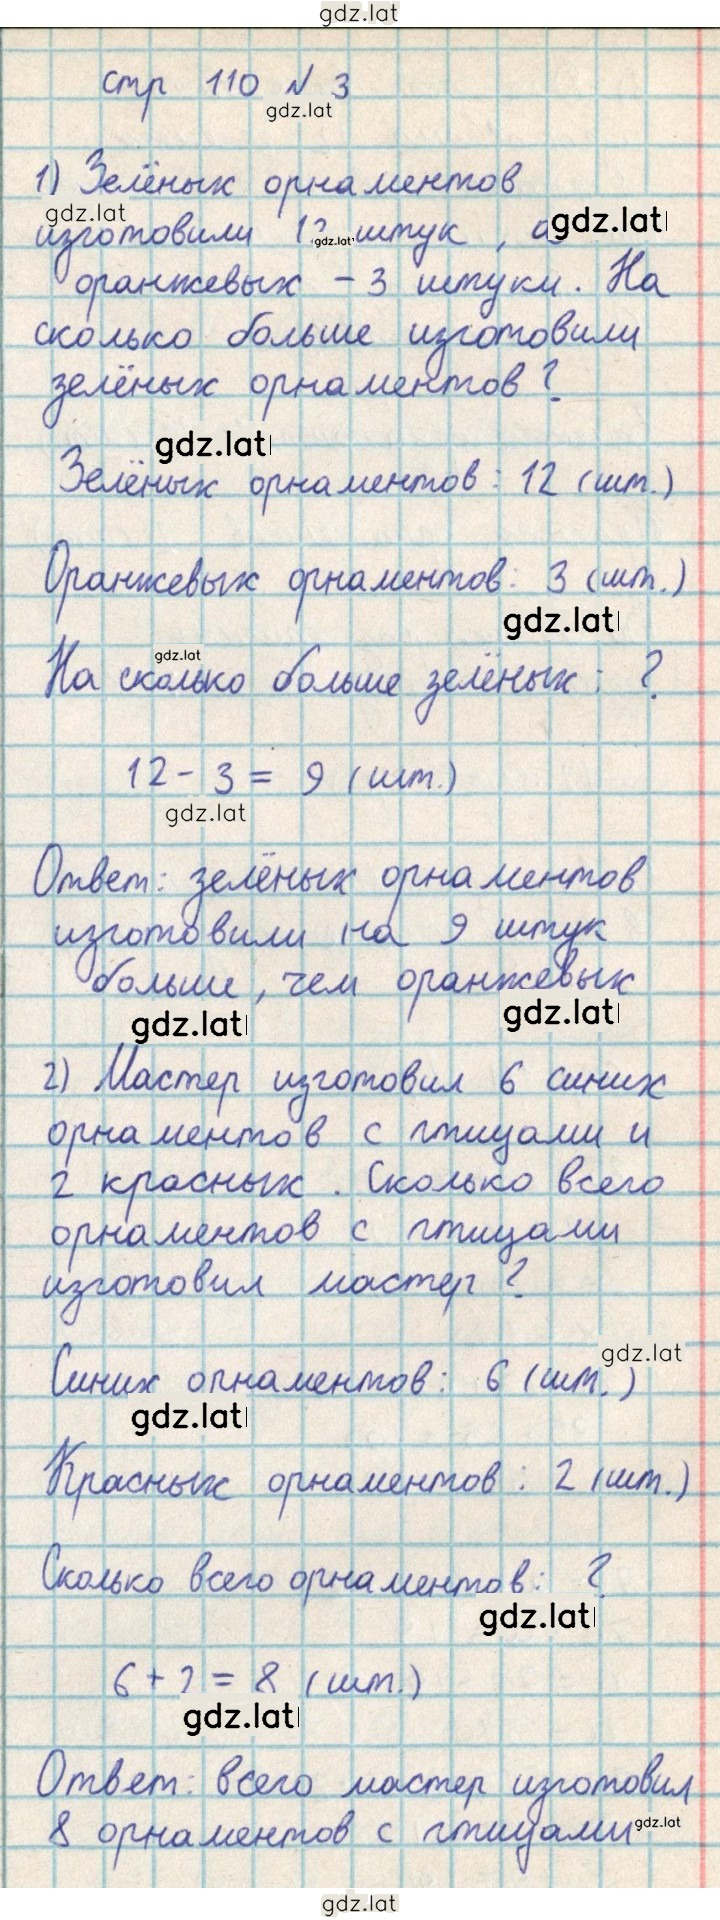 gdz.lat
стр 110 № 3
gdz.lat
1) Зелёных орнаментов
gdz.lat
изготовили gdz.lat штук, а gdz.lat
оранжевых - 3 штуки. На
сколько больше изготовили
зелёных орнаментов?
gdz.lat
Зелёных орнаментов: 12 (шт.)
Оранжевых орнаментов: 3 (шт.)
gdz.lat
gdz.lat
На сколько больше зелёных: ?
12 - 3 = 9 (шт.)
gdz.lat
Ответ: зелёных орнаментов
изготовили на 9 штук
больше, чем оранжевых
gdz.lat gdz.lat
2) Мастер изготовил 6 синих
орнаментов с птицами и
2 красных. Сколько всего
орнаментов с птицами
изготовил мастер?
gdz.lat
Синих орнаментов: 6 (шт.)
gdz.lat
Красных орнаментов: 2 (шт.)
Сколько всего орнаментов: ?
gdz.lat
6 + 2 = 8 (шт.)
gdz.lat
Ответ: всего мастер изготовил
8 орнаментов с птицами gdz.lat
gdz.lat